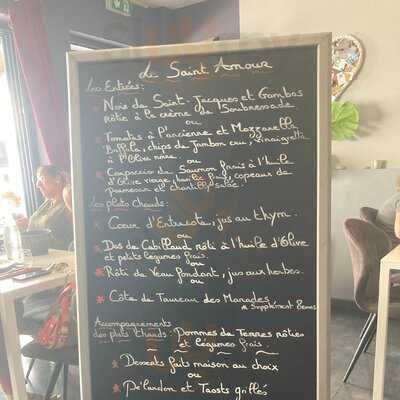 Le Saint Amour
Les Entrées:
Noix de Saint-Jacques et Gambas
rôtie à la crème de Soubressade.
ou
Tomates à l'ancienne et Mozzarella
Buffala, chips de Jambon cru, vinaigrette
à l'Olive noire.
ou
Carpaccio de Saumon frais à l'huile
d'Olive vierge, copeaux de
Parmesan et chantilly salée.
Les plats chauds:
Cœur d'Entrecôte, jus au thym.
ou
Dos de Cabillaud rôti à l'huile d'Olive
et petits légumes frais.
ou
Rôti de Veau fondant, jus aux herbes.
ou
Côte de Taureau des Manades
* Supplément
Accompagnements
des plats chauds: Pommes de Terres rôties
et Légumes frais.
Desserts faits maison au choix
ou
Pélardon et Toasts grillés